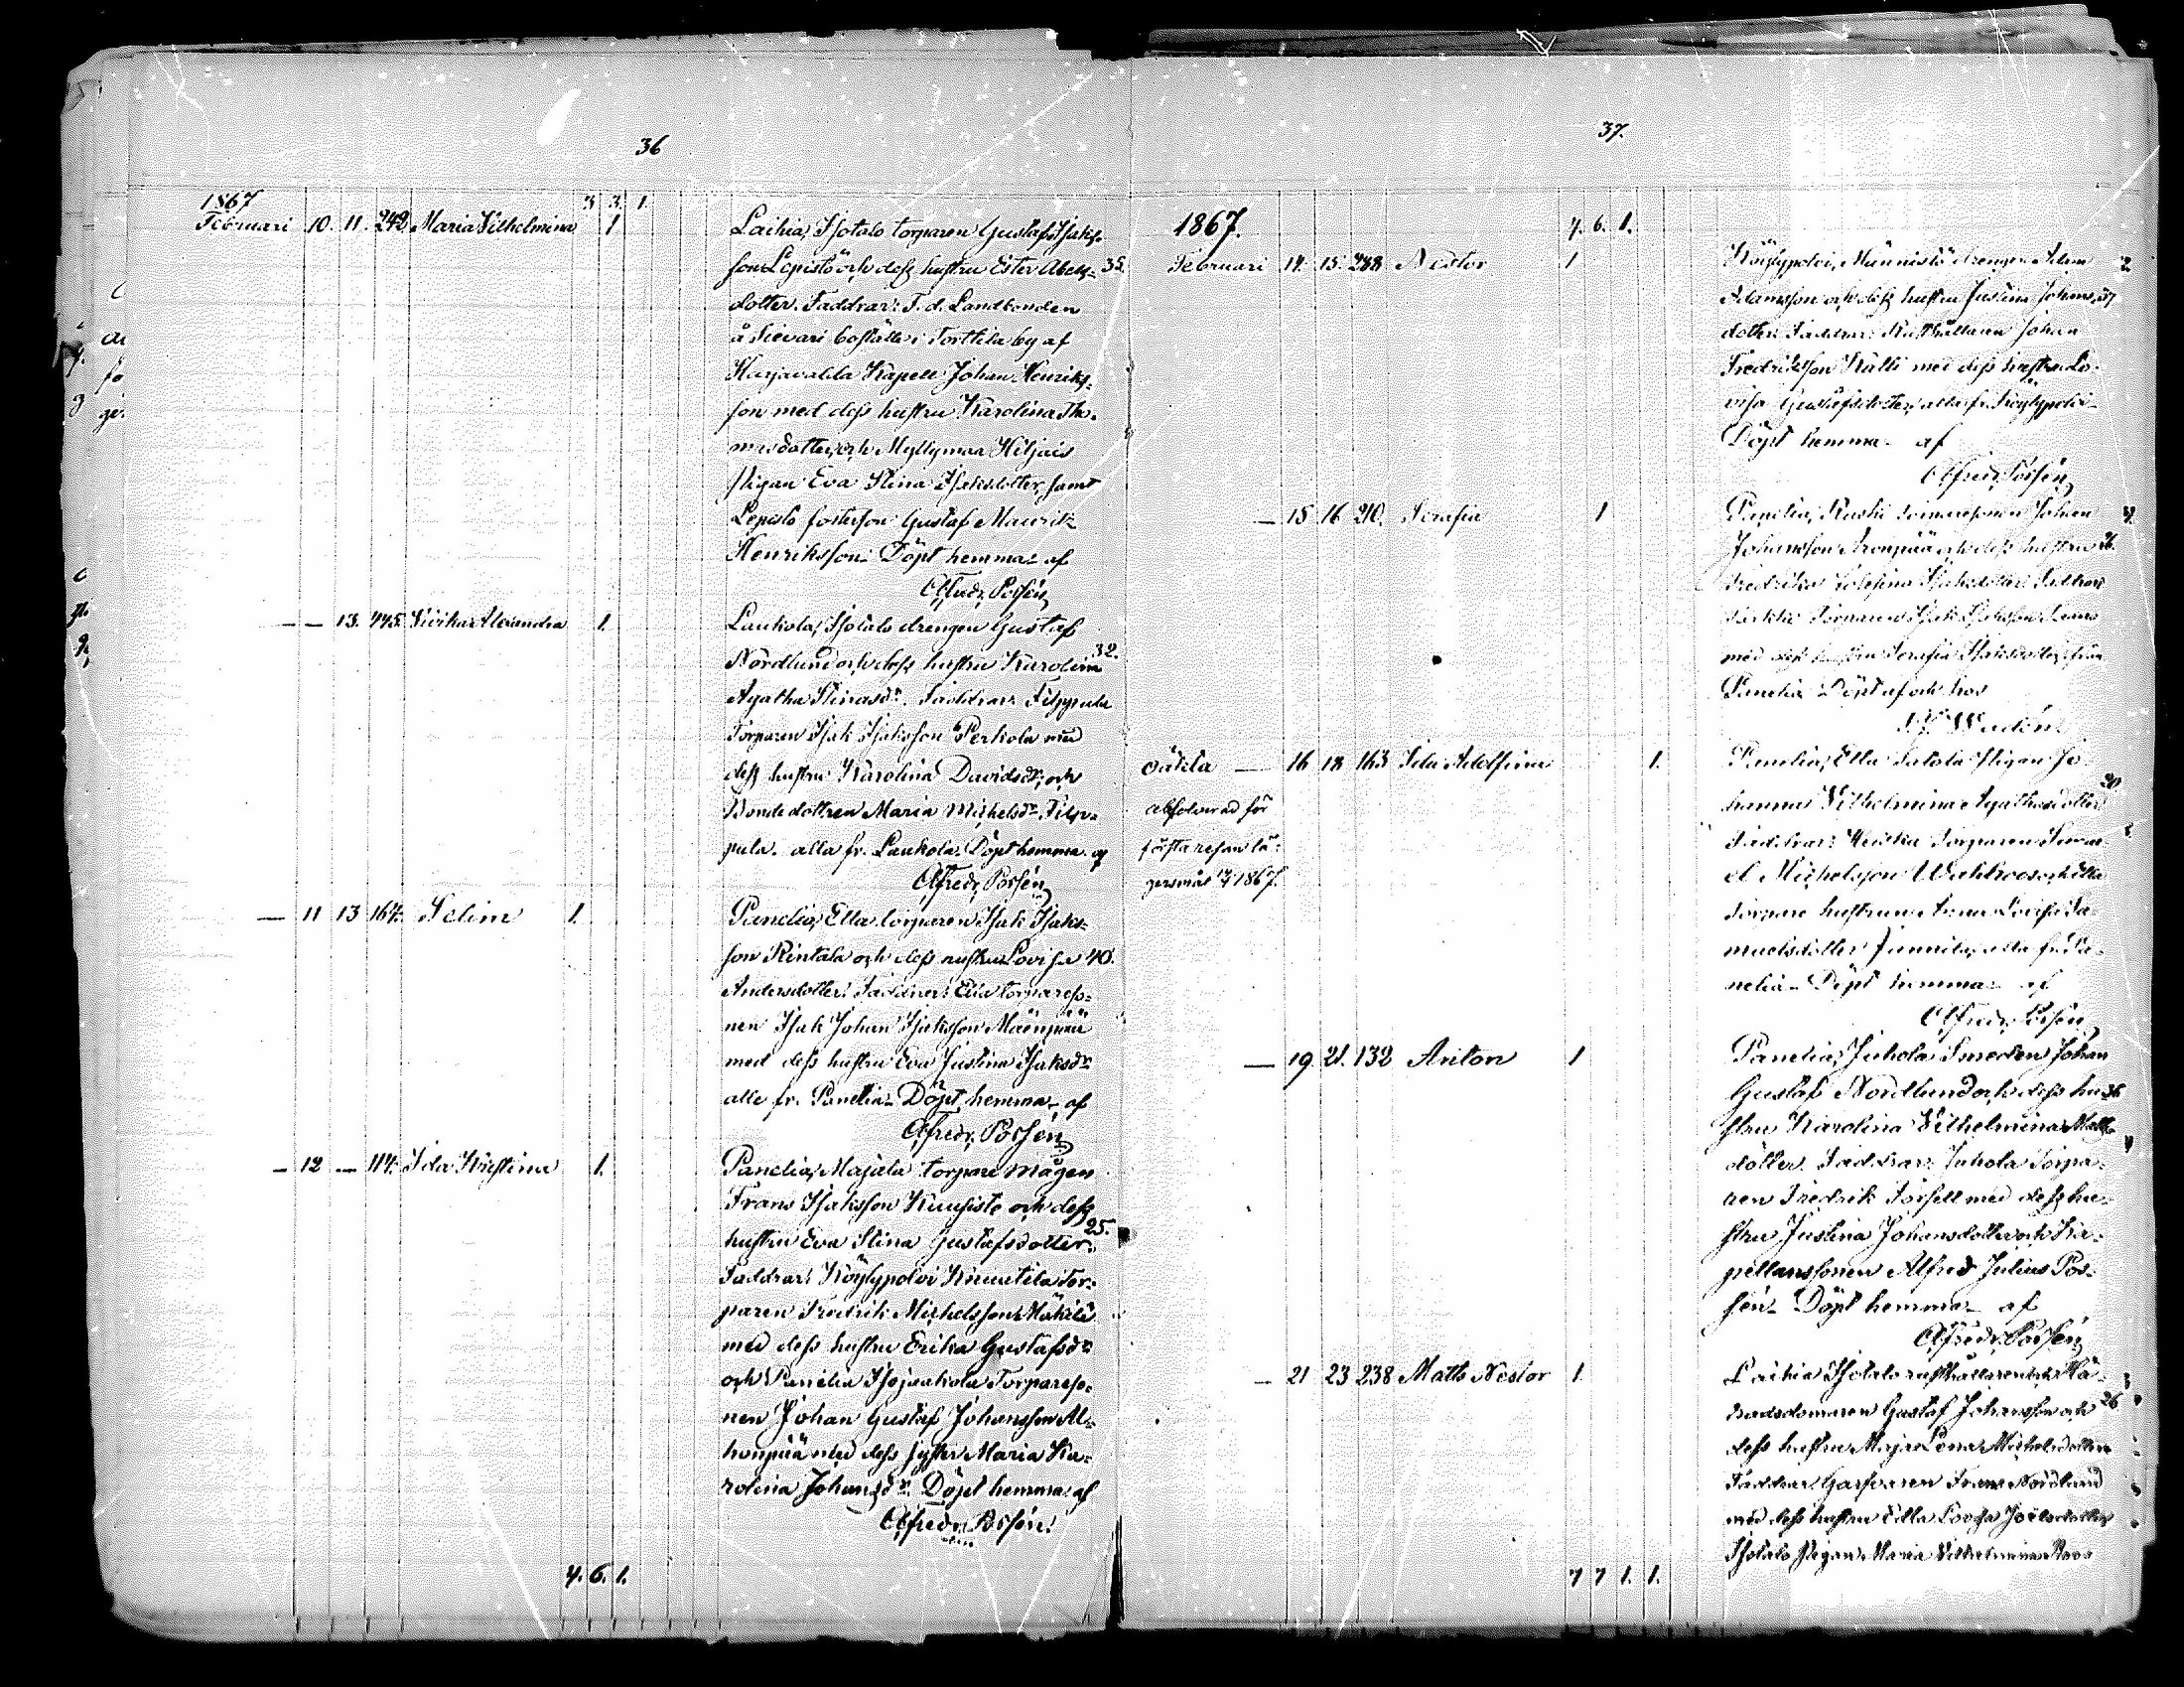 36
1867 3 3. 1.
Februari 10. 11. 242. Maria Vilhelmina 1
Laihia, Isotalo torparen Gustaf Isaks-
son Lepistö och dess hustru Ester Abels- 35.
dotter. Faddrar: F. d. Landbonden
å Sievari boställe i Torttila by af
Harjavalda Kapell Johan Henriks-
son med dess hustru Karolina Tho-
masdotter, och Myllymaa Hiljais
pigan Eva Stina Isaksdotter, samt
Lepistö fosterson Gustaf Maurits
Henriksson. Döpt hemma af
Alfredr. Possén
— — 13. 445. Alexandra 1.
Laukola, Isotalo drengen Gustaf
Nordlund och dess hustru Karolina 32.
Agatha Stinasdr. Faddrar: Filppula
Torparen Isak Isaksson Perkola med
dess hustru Karolina Davidsdr. och
Bondedottren Maria Michelsdr. Filp-
pula. alla fr. Laukola. Döpt hemma af
Alfredr. Possén
— 11 13 164. Selim 1.
Panelia, Ella torparen Isak Isaks-
son Rintala och dess hustru Lovisa 40.
Andersdotter. Faddrar: Ella torpareso-
nen Isak Johan Isaksson Mäenpää
med dess hustru Eva Justina Isaksdr.
alle fr. Panelia. Döpt hemma af
Alfredr. Possén
— 12 — 114. Ida Kristina 1.
Panelia, Majala torpare mågen
Frans Isaksson Kuusisto och dess
hustru Eva Stina Gustafsdotter. 25.
Faddrar: Köylypolvi Knuutila Tor-
paren Fredrik Michelsson Mäkilä
med dess hustru Erika Gustafsdr.
och Panelia Isojaakola Torpareso-
nen Johan Gustaf Johansson Al-
honpää med dess syster Maria Ka-
rolina Johansdr. Döpt hemma af
Alfredr. Possén.
4. 6. 1.
37.
1867. 4. 6. 1.
Februari 14. 15. 288 Nestor 1
Köylypolvi, Männistö drengen Adam
Adamsson och dess hustru Justina Johans-
dotter. Faddrar: Rusthållaren Johan
Fredriksson Källi med dess hustru Lo-
visa Gustafsdotter, alla fr. Köylypolvi.
Döpt hemma af
Alfredr. Possén
— 15 16 210. Serafia 1
Panelia, Johan
Johansson och dess hustru 26.
Fredrika Josefina Isaksdotter.
Torparen Isak Isaksson
med dess hustru Serafia Isaksdotter, från
Panelia. Döpt af och hos
oäkta — 16 18 163 Ida Adolfina 1.
Panelia, Ella Satola Pigan Jo-
hanna Vilhelmina Agathasdotter. 20
absolverad för
första resan lä-
gersmål 1867.
Faddrar: Heikka Torparen Samu-
el Michelsson och Ella
Torpare hustrun Anna Lovisa Sa-
muelsdotter Junnila, alla fr. Pa-
nelia. Döpt hemma af
Alfredr. Possén
— 19. 21. 132 Anton 1
Panelia, Juhola Smeden Johan
Gustaf Nordlund och dess hu- 36
stru Karolina Vilhelmina Matts-
dotter. Faddrar: Juhola Torpa-
ren Fredrik Forsell med dess hu-
stru Justina Johansdotter och Ka-
pellanssonen Alfred Julius Pos-
sén. Döpt hemma af
Alfredr. Possén
— 21 23 238 Matts Nestor 1.
Laihia Isotalo rusthållaren och Hä-
radsdomaren Gustaf Johansson och 26
dess hustru Maja Lena Michelsdotter.
Faddrar: Garfvaren Frans Nordlund
med dess hustru Edla Lovisa Joëlsdotter
Isotalo Pigan Maria Vilhelmina Roos
7 7 1. 1.